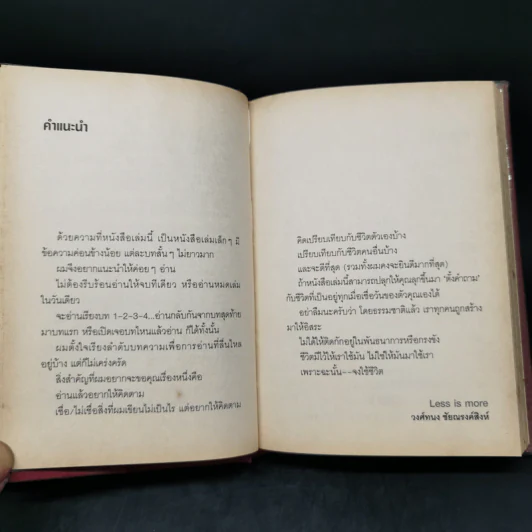 คำแนะนำ
ด้วยความที่หนังสือเล่มนี้ เป็นหนังสือเล่มเล็กๆ มี
ข้อความค่อนข้างน้อย แต่ละบทสั้นๆ ไม่ยาวมาก
ผมจึงอยากแนะนำให้ค่อยๆ อ่าน
ไม่ต้องรีบร้อนอ่านให้จบทีเดียว หรืออ่านหมดเล่ม
ในวันเดียว
จะอ่านเรียงบท 1-2-3-4... อ่านกลับกันจากบทสุดท้าย
มาบทแรก หรือเปิดเจอบทไหนแล้วอ่าน ก็ได้ทั้งนั้น
ผมตั้งใจเรียงลำดับบทความเพื่อการอ่านที่ลื่นไหล
อยู่บ้าง แต่ก็ไม่เคร่งครัด
สิ่งสำคัญที่ผมอยากจะขอคุณเรื่องหนึ่งคือ
อ่านแล้วอยากให้คิดตาม
เชื่อ/ไม่เชื่อสิ่งที่ผมเขียนไม่เป็นไร แต่อยากให้คิดตาม
คิดเปรียบเทียบกับชีวิตตัวเองบ้าง
เปรียบเทียบกับชีวิตคนอื่นบ้าง
และจะดีที่สุด (รวมทั้งผมคงจะยินดีมากที่สุด)
ถ้าหนังสือเล่มนี้สามารถปลุกให้คุณลุกขึ้นมา 'ตั้งคำถาม'
กับชีวิตที่เป็นอยู่ทุกเมื่อเชื่อวันของตัวคุณเองได้
อย่าลืมนะครับว่า โดยธรรมชาติแล้ว เราทุกคนถูกสร้าง
มาให้อิสระ
ไม่ได้ให้ติดกักอยู่ในพันธนาการหรือกรงขัง
ชีวิตมีไว้ให้เราใช้มัน ไม่ใช่ให้มันมาใช้เรา
เพราะฉะนั้น--จงใช้ชีวิต
Less is more
วงศ์ทนง ชัยณรงค์สิงห์